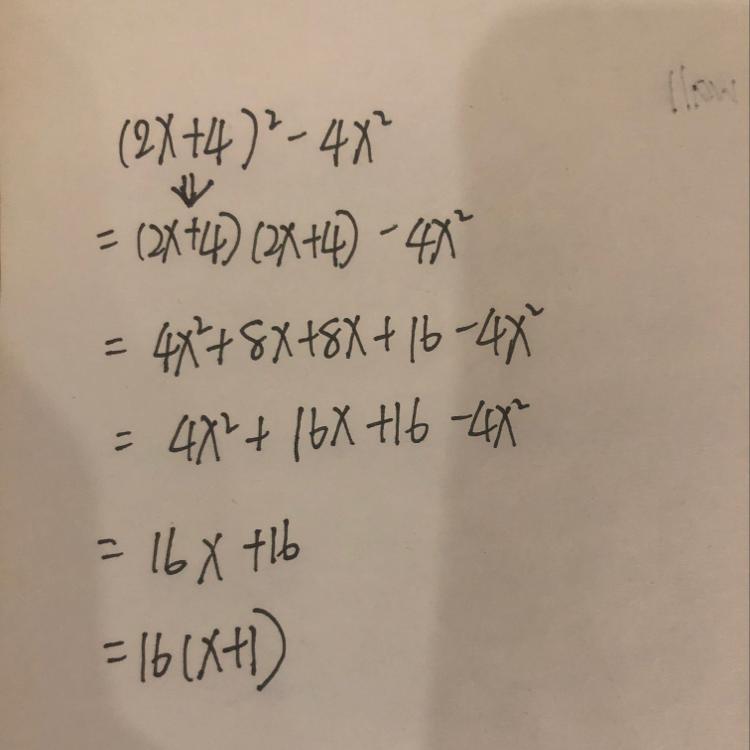 (2x+4)² - 4x²
⇓
= (2x+4)(2x+4) - 4x²
= 4x²+8x+8x+16-4x²
= 4x²+16x+16-4x²
= 16x+16
=16(x+1)